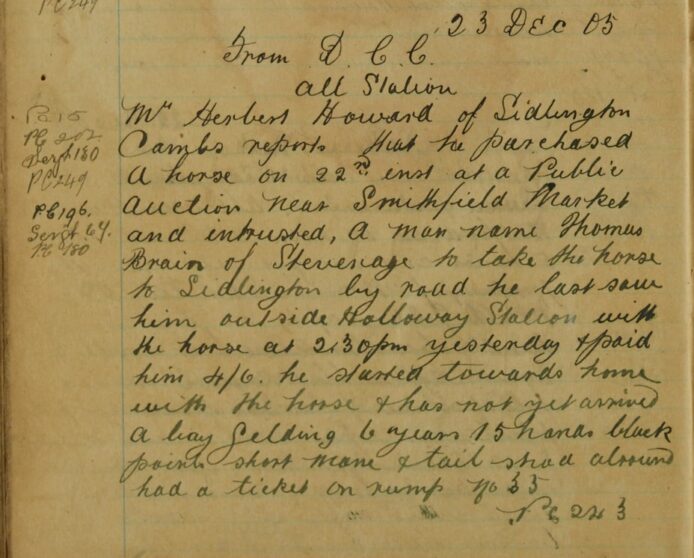 PC 249
23 Dec 05
From D. C. C.
all Station
Mr Herbert Howard of Lidlington
Cambs reports that he purchased
a horse on 22nd inst at a Public
Auction near Smithfield Market
and intrusted, a man name Thomas
Brain of Stevenage to take the horse
to Lidlington by road he last saw
him outside Holloway Station with
the horse at 2.30pm yesterday & paid
him 4/6. he started towards home
with the horse & has not yet arrived
a bay Gelding 6 years 15 hands black
points short mane & tail shod alround
had a ticket on rump No 35
PC 243
PC 202
Sergt 180
PC 249
PC 196.
Sergt 64.
PC 180